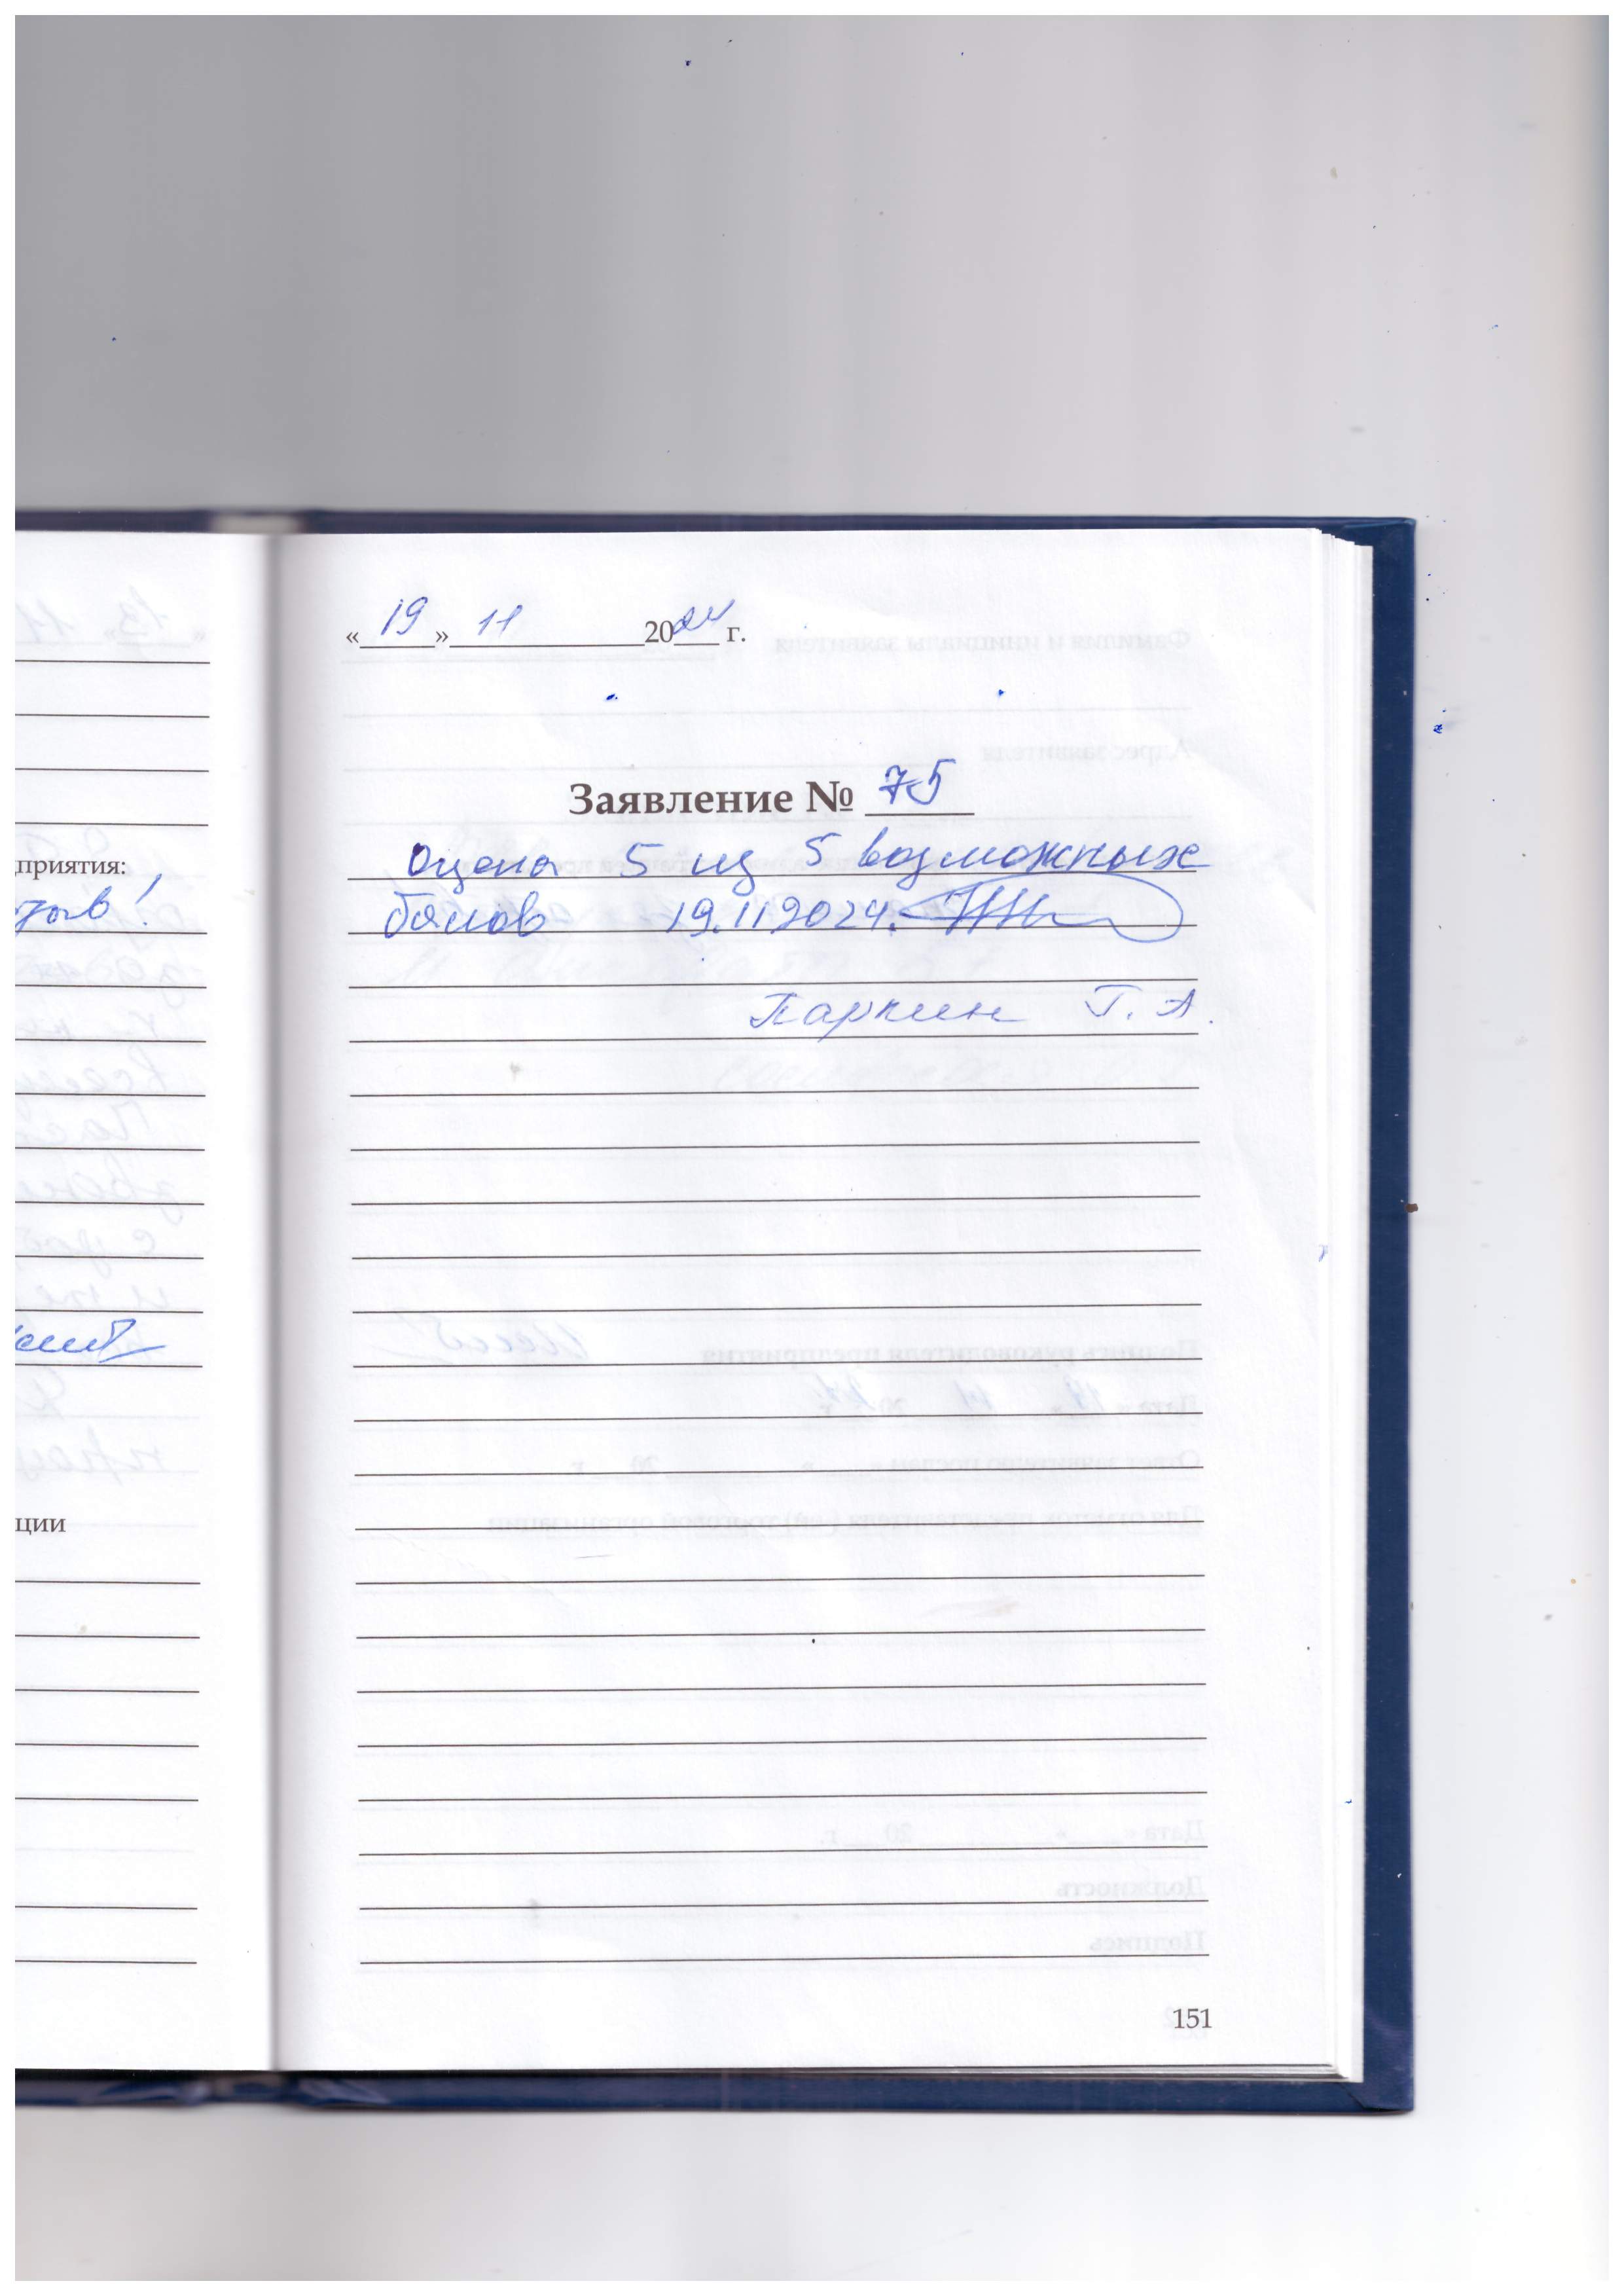 приятия:
ции
« 19 » 11 2024 г.
Заявление № 75
Оцена 5 из 5 возможных
балов 19.11.2024.
Паркин Г. А.
151